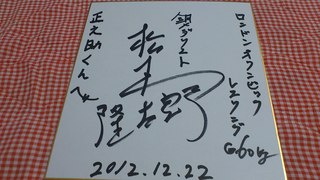 ロンドンオリンピック
レスリング 60kg
銅メダリスト
松本隆太郎
正之助くんへ
2012.12.22